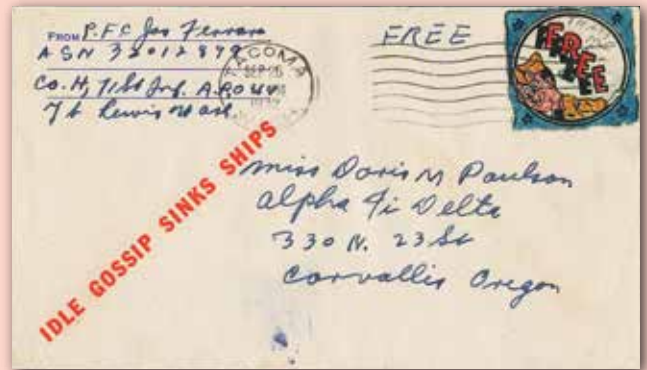 FROM P.F.C Jos Ferrara
ASN 33012879
Co. H, 71st Inf. A.P.O 44
Ft Lewis Wash
TACOMA
SEP 26
FREE
FREE
IDLE GOSSIP SINKS SHIPS
Miss Doris M Paulson
Alpha Xi Delta
330 N. 23 St
Corvallis Oregon